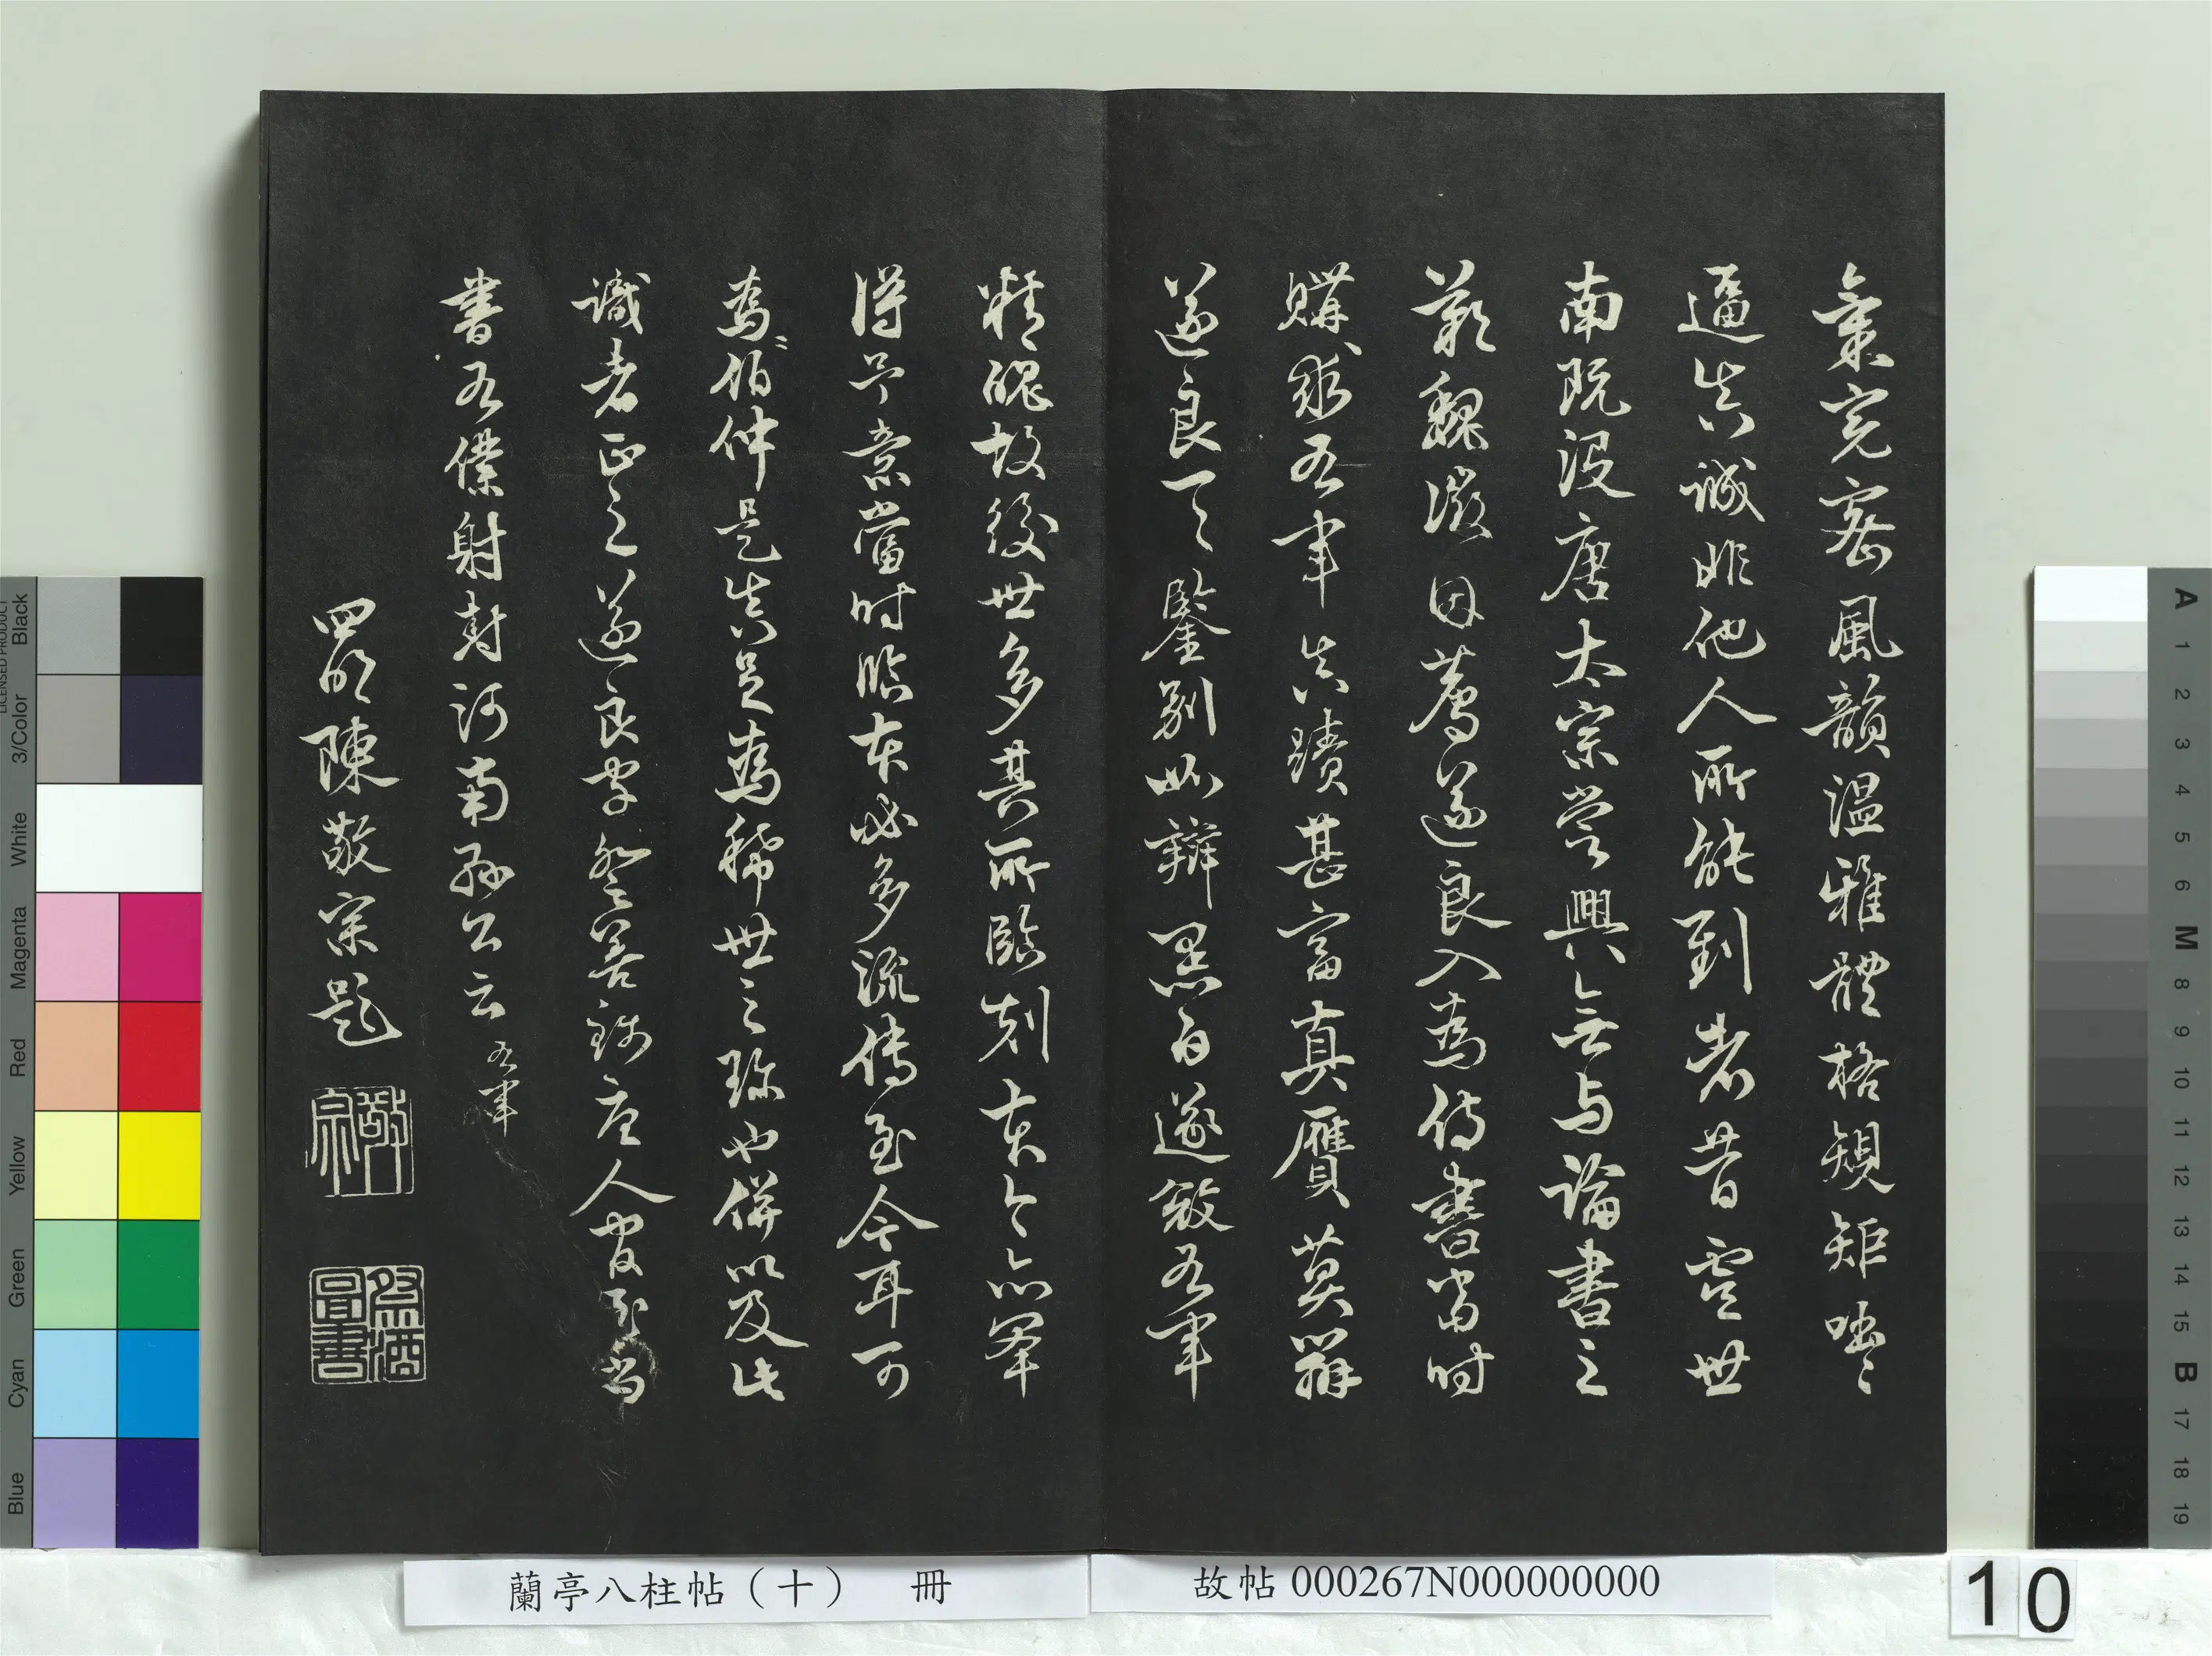 氣完密風韻溫雅體格規矩咄〻
逼真誠非他人所能到者昔虞世
南既沒唐太宗嘗興無與論書之
歎魏徵因薦遂良入為侍書當時
購求右軍真蹟甚富真贗莫辯
遂良一一鑒別如辨黑白遂敘右軍
精確故後世多其所臨刻本今亦罕
得予意當時臨本必多流傳至今耳可
為〻伯仲是真足為稀世之珍也併以及此
識者正之遂良字登善錢唐人官至尚
書右僕射封河南郡公云 右軍
四明陳敬宗題
敬宗
祭酒
圖書
蘭亭八柱帖（十） 冊
故帖 000267N000000000
10
Black
3/Color
White
Magenta
Red
Yellow
Green
Cyan
Blue
A 1 2 3 4 5 6 M 8 9 10 11 12 13 14 15 B 17 18 19